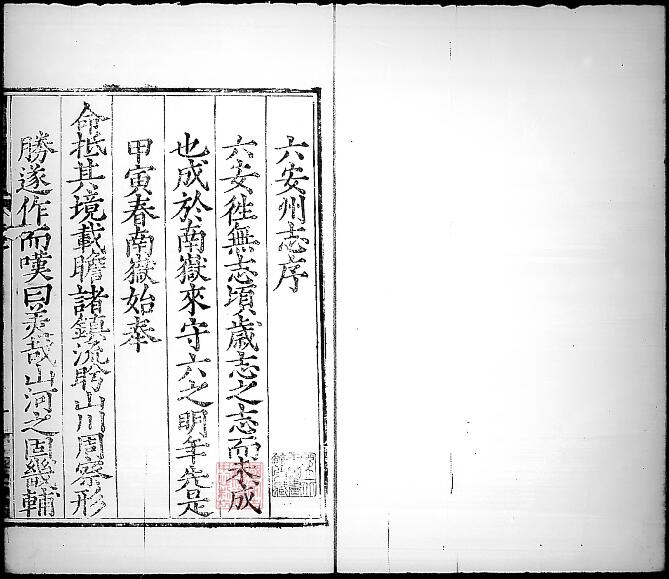 六安州志序
六安徃無志頃歲志之志而未成
也成於南嶽來守六之明年先是
甲寅春南嶽始奉
命抵其境載瞻諸鎮流盻山川周察形
勝遂作而嘆曰美哉山河之固畿輔